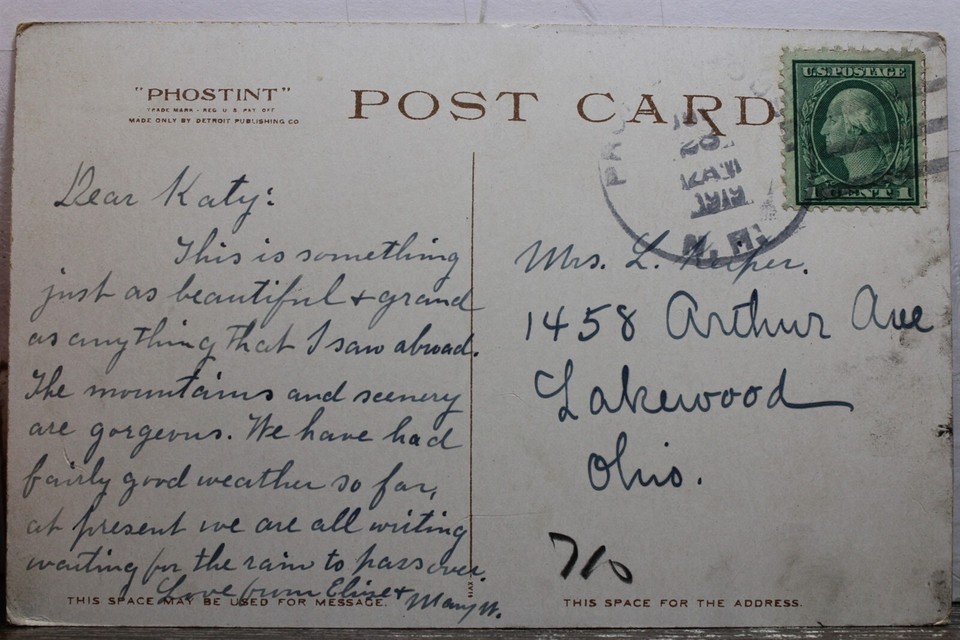 "PHOSTINT"
TRADE MARK - REG. U. S. PAT. OFF.
MADE ONLY BY DETROIT PUBLISHING CO
POST CARD
U.S. POSTAGE
1 CENT 1
N. H.
Dear Katy:
This is something
just as beautiful & grand
as anything that I saw abroad.
The mountains and scenery
are gorgeous. We have had
fairly good weather so far,
at present we are all writing
waiting for the rain to pass over.
Love from Elise &
Mary W.
THIS SPACE MAY BE USED FOR MESSAGE.
Mrs. L. Keiper.
1458 Arthur Ave
Lakewood
Ohio.
THIS SPACE FOR THE ADDRESS.